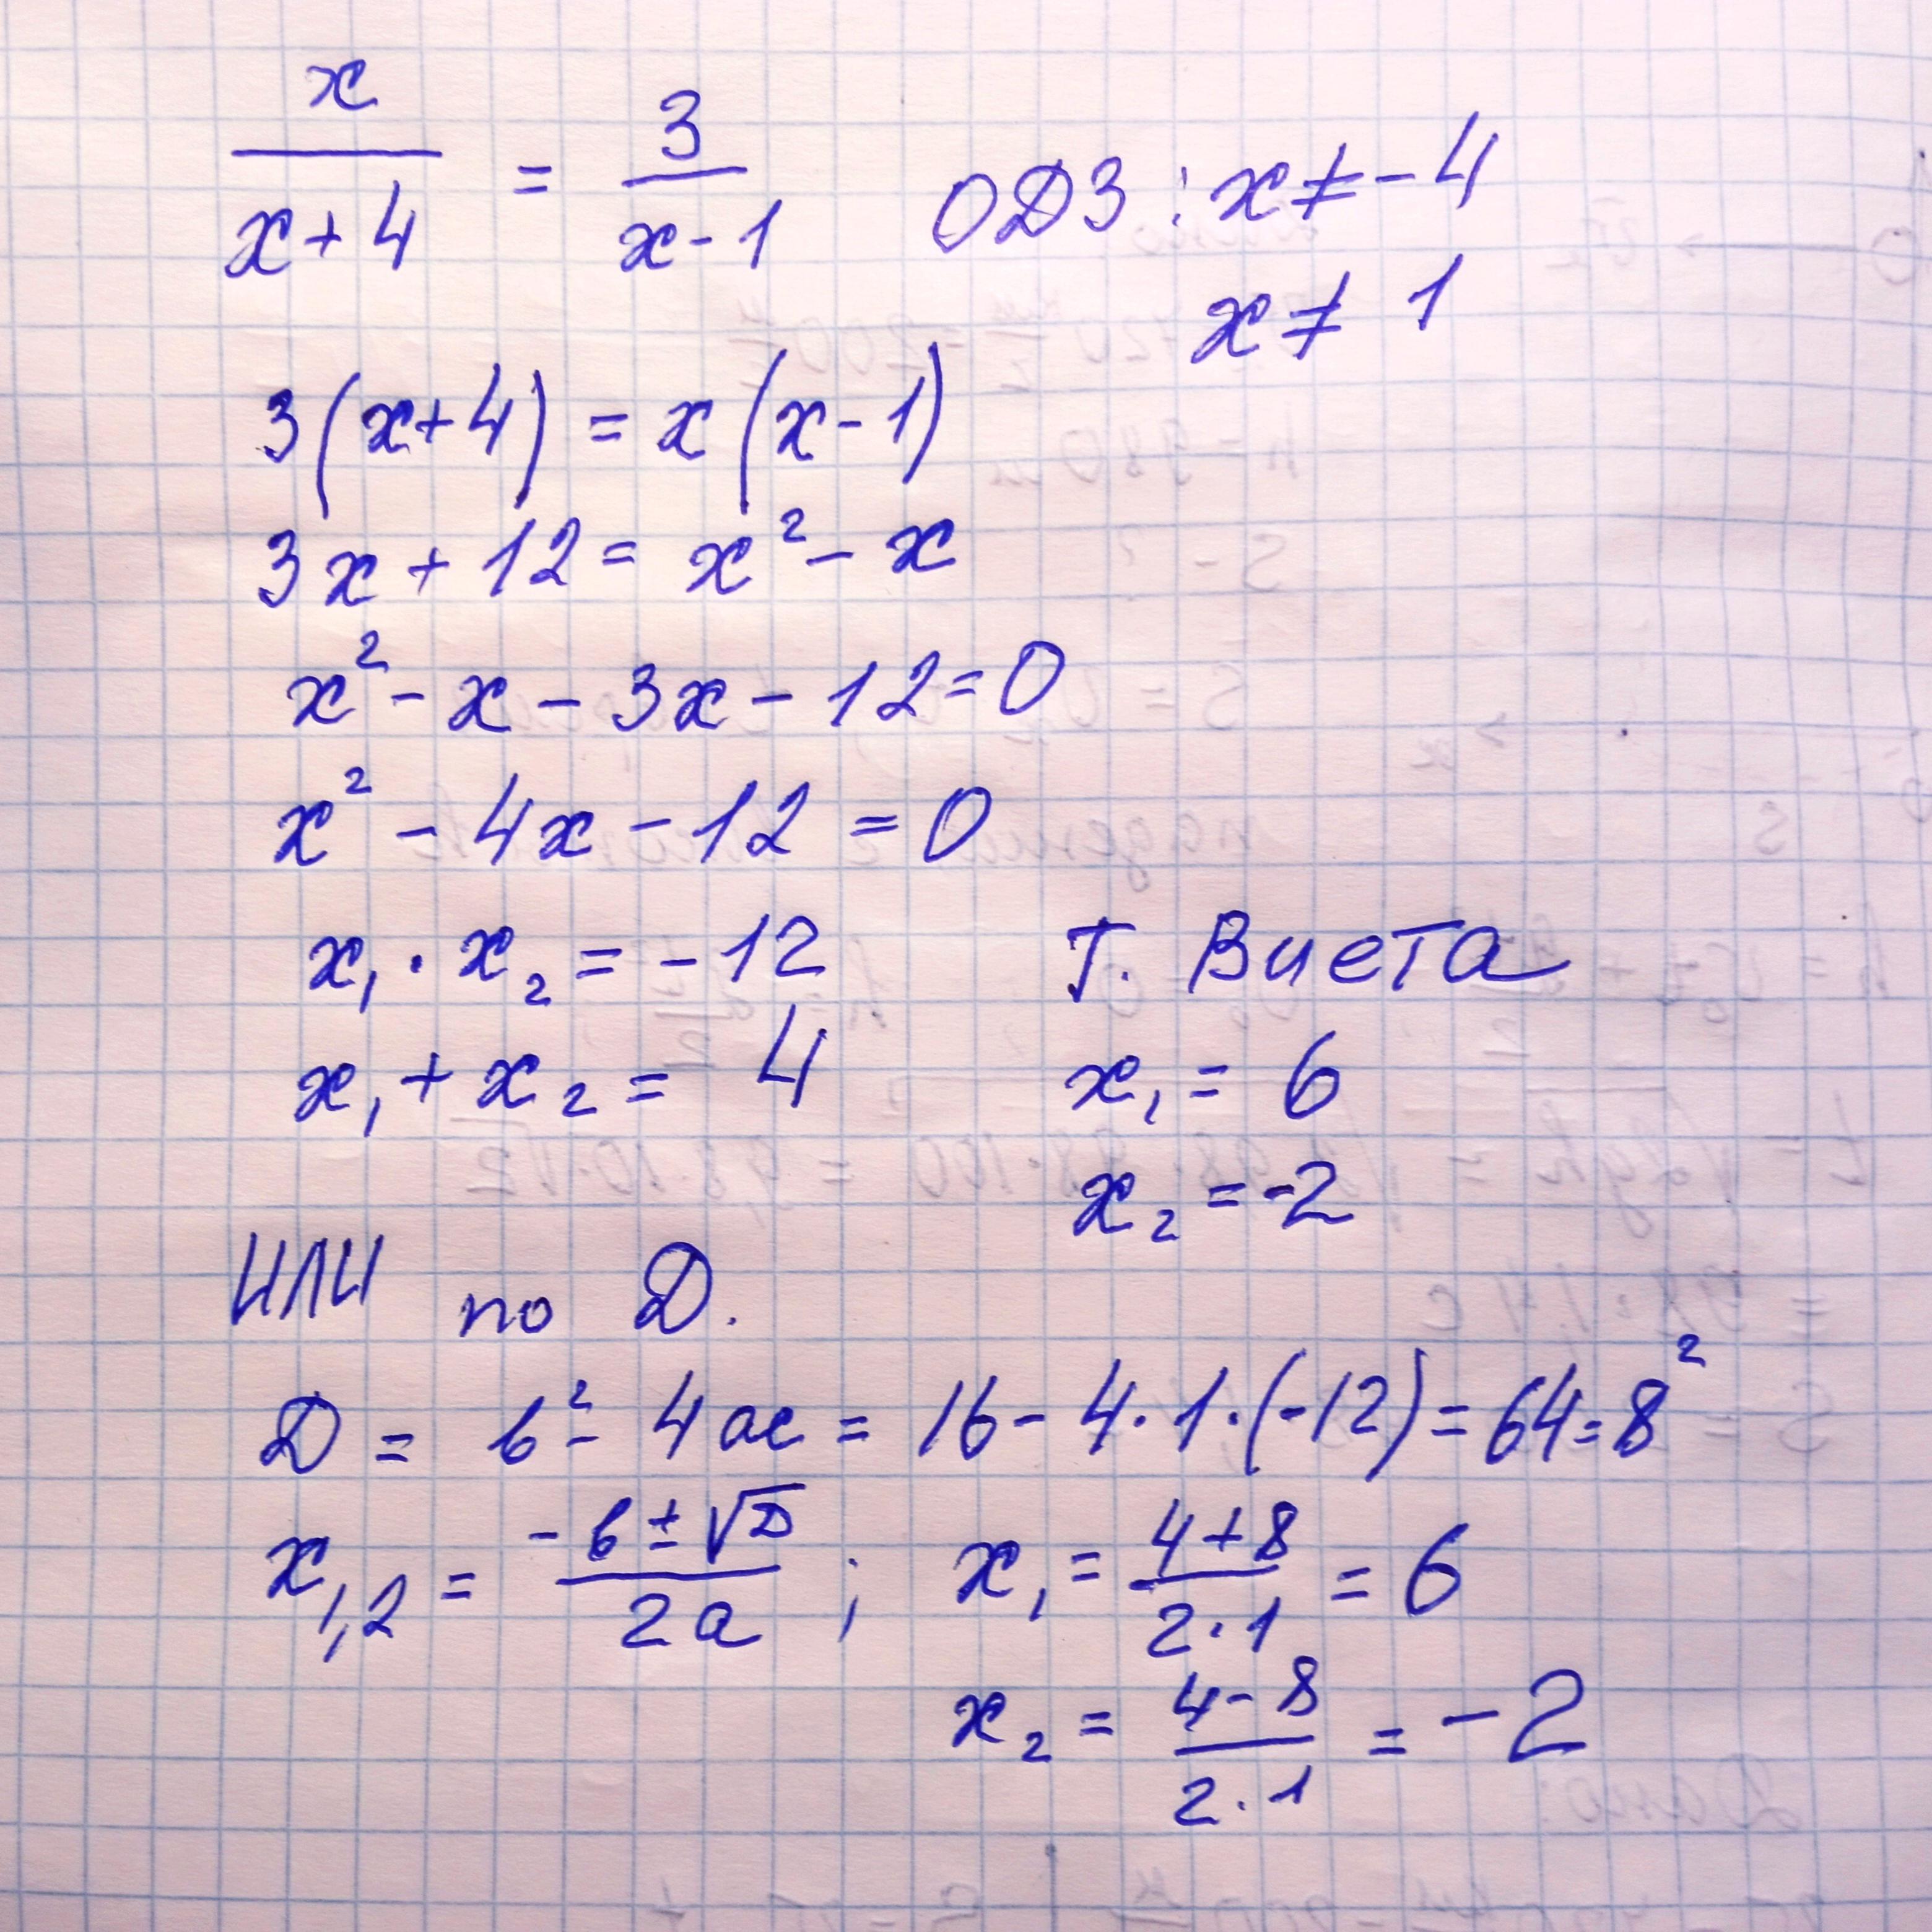 x/(x+4) = 3/(x-1) ОДЗ: x ≠ -4
x ≠ 1
3(x+4) = x(x-1)
3x + 12 = x² - x
x² - x - 3x - 12 = 0
x² - 4x - 12 = 0
x₁ · x₂ = -12 Т. Виета
x₁ + x₂ = 4 x₁ = 6
x₂ = -2
ИЛИ по Д.
Д = b² - 4ac = 16 - 4·1·(-12) = 64 = 8²
x₁,₂ = (-b ± √Д)/(2a) ; x₁ = (4+8)/(2·1) = 6
x₂ = (4-8)/(2·1) = -2